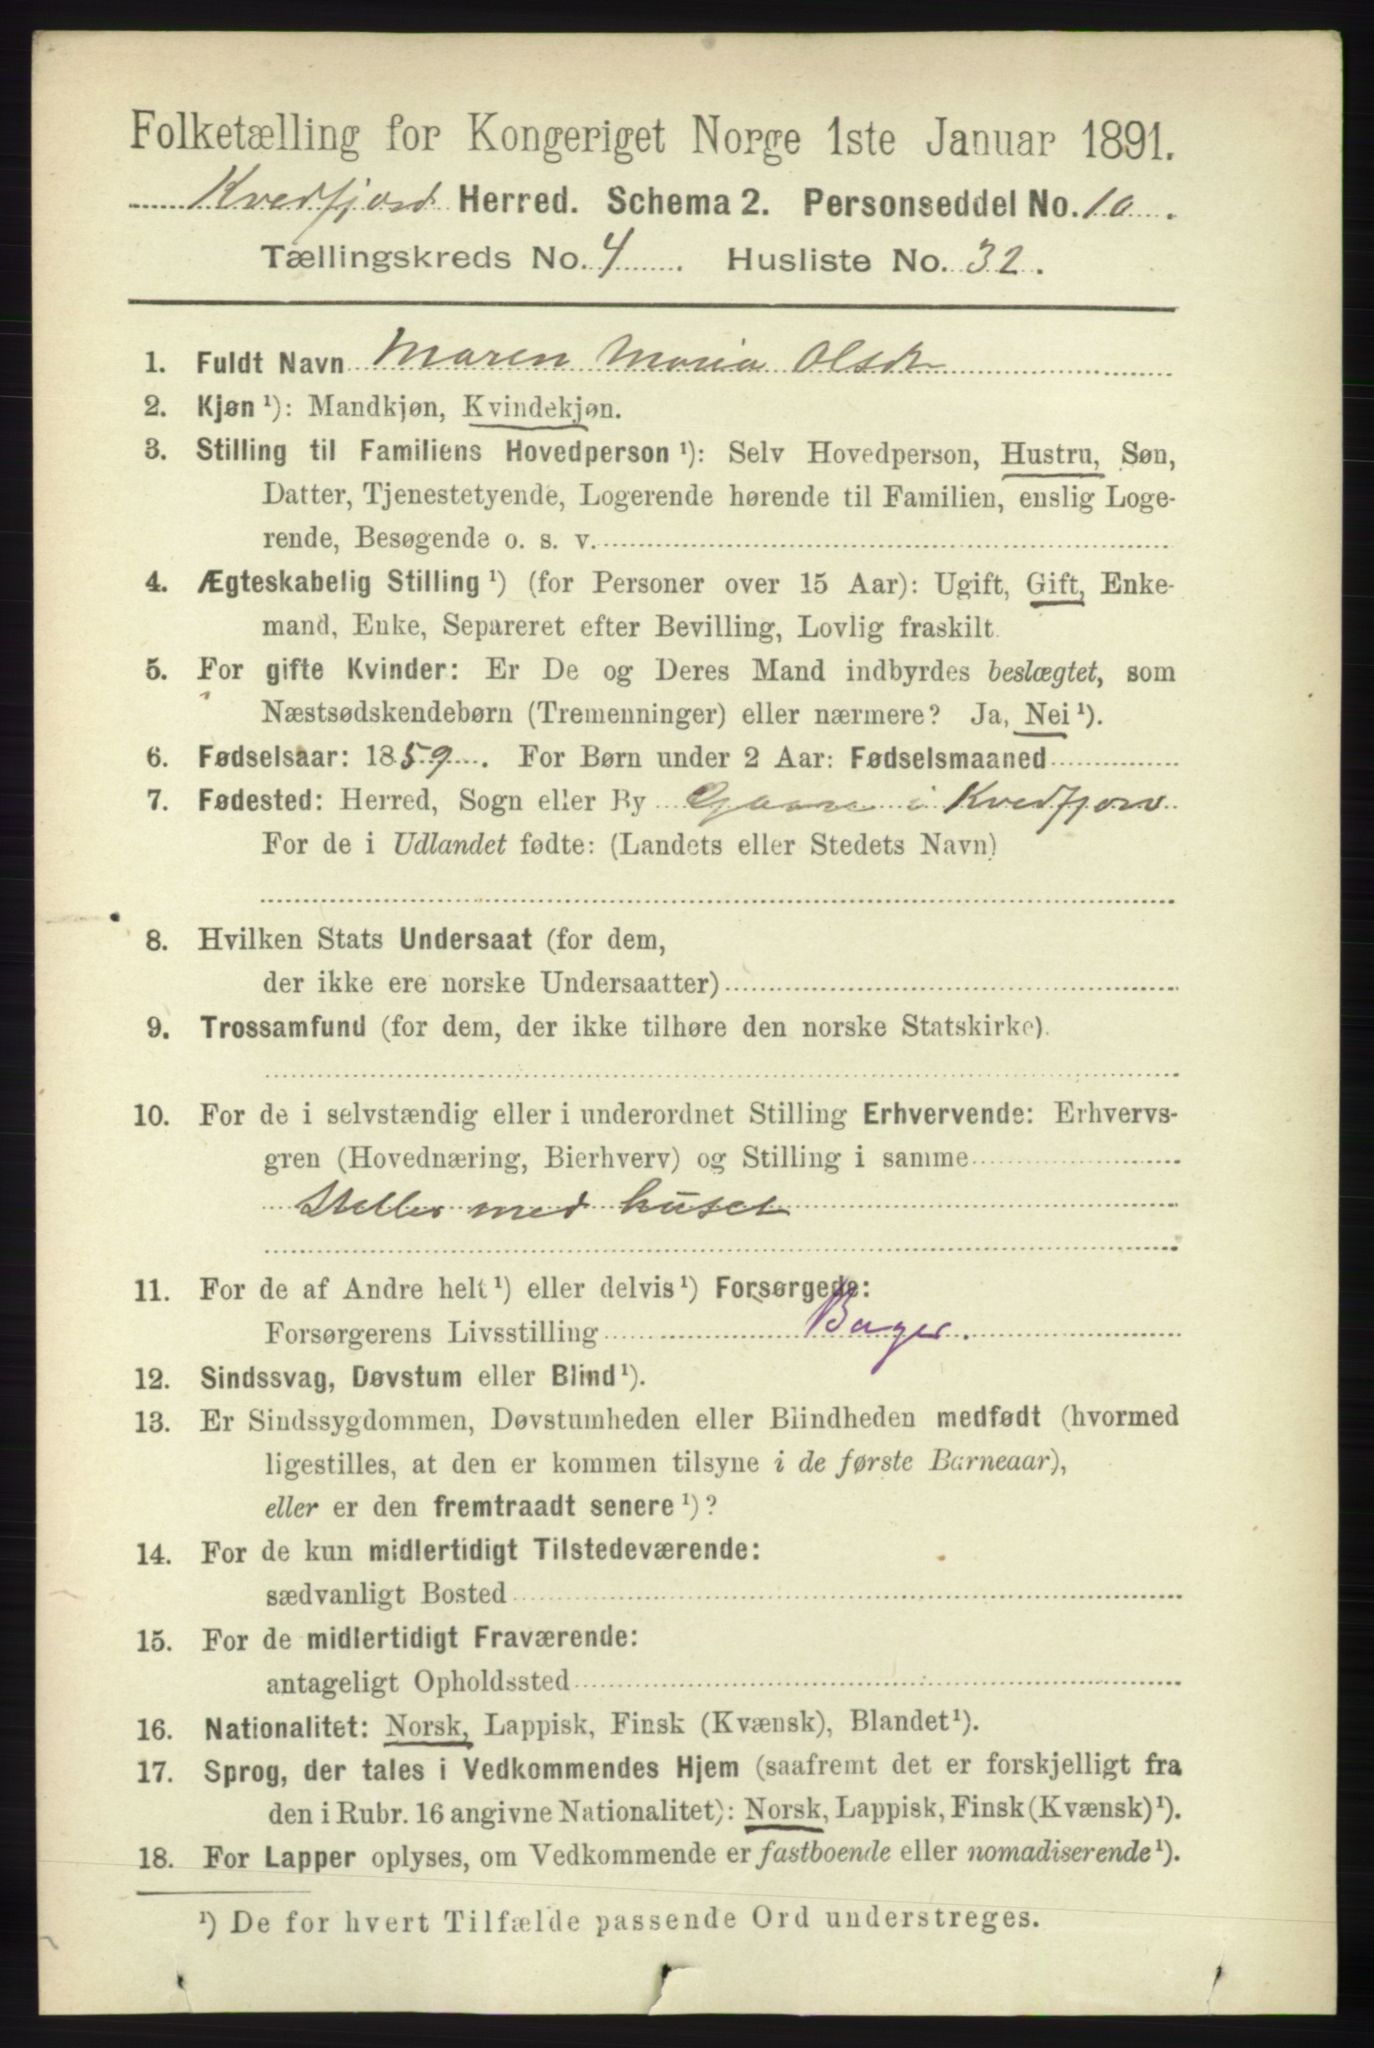 Folketælling for Kongeriget Norge 1ste Januar 1891.
Kvedfjord Herred. Schema 2. Personseddel No. 10.
Tællingskreds No. 4. Husliste No. 32.
1. Fuldt Navn Maren Maria Olsdr
2. Kjøn ¹): Mandkjøn, Kvindekjøn.
3. Stilling til Familiens Hovedperson ¹): Selv Hovedperson, Hustru, Søn,
Datter, Tjenestetyende, Logerende hørende til Familien, enslig Loge-
rende, Besøgende o. s. v.
4. Ægteskabelig Stilling ¹) (for Personer over 15 Aar): Ugift, Gift, Enke-
mand, Enke, Separeret efter Bevilling, Lovlig fraskilt.
5. For gifte Kvinder: Er De og Deres Mand indbyrdes beslægtet, som
Næstsødskendebørn (Tremenninger) eller nærmere? Ja, Nei ¹).
6. Fødselsaar: 1859. For Børn under 2 Aar: Fødselsmaaned
7. Fødested: Herred, Sogn eller By i Kvedfjord
For de i Udlandet fødte: (Landets eller Stedets Navn)
8. Hvilken Stats Undersaat (for dem,
der ikke ere norske Undersaatter)
9. Trossamfund (for dem, der ikke tilhøre den norske Statskirke).
10. For de i selvstændig eller i underordnet Stilling Erhvervende: Erhvervs-
gren (Hovednæring, Bierhverv) og Stilling i samme
Steller med huset
11. For de af Andre helt ¹) eller delvis ¹) Forsørgede:
Forsørgerens Livsstilling Bager.
12. Sindssvag, Døvstum eller Blind ¹).
13. Er Sindssygdommen, Døvstumheden eller Blindheden medfødt (hvormed
ligestilles, at den er kommen tilsyne i de første Barneaar),
eller er den fremtraadt senere ¹)?
14. For de kun midlertidigt Tilstedeværende:
sædvanligt Bosted
15. For de midlertidigt Fraværende:
antageligt Opholdssted
16. Nationalitet: Norsk, Lappisk, Finsk (Kvænsk), Blandet ¹).
17. Sprog, der tales i Vedkommendes Hjem (saafremt det er forskjelligt fra
den i Rubr. 16 angivne Nationalitet): Norsk, Lappisk, Finsk (Kvænsk) ¹).
18. For Lapper oplyses, om Vedkommende er fastboende eller nomadiserende ¹).
¹) De for hvert Tilfælde passende Ord understreges.